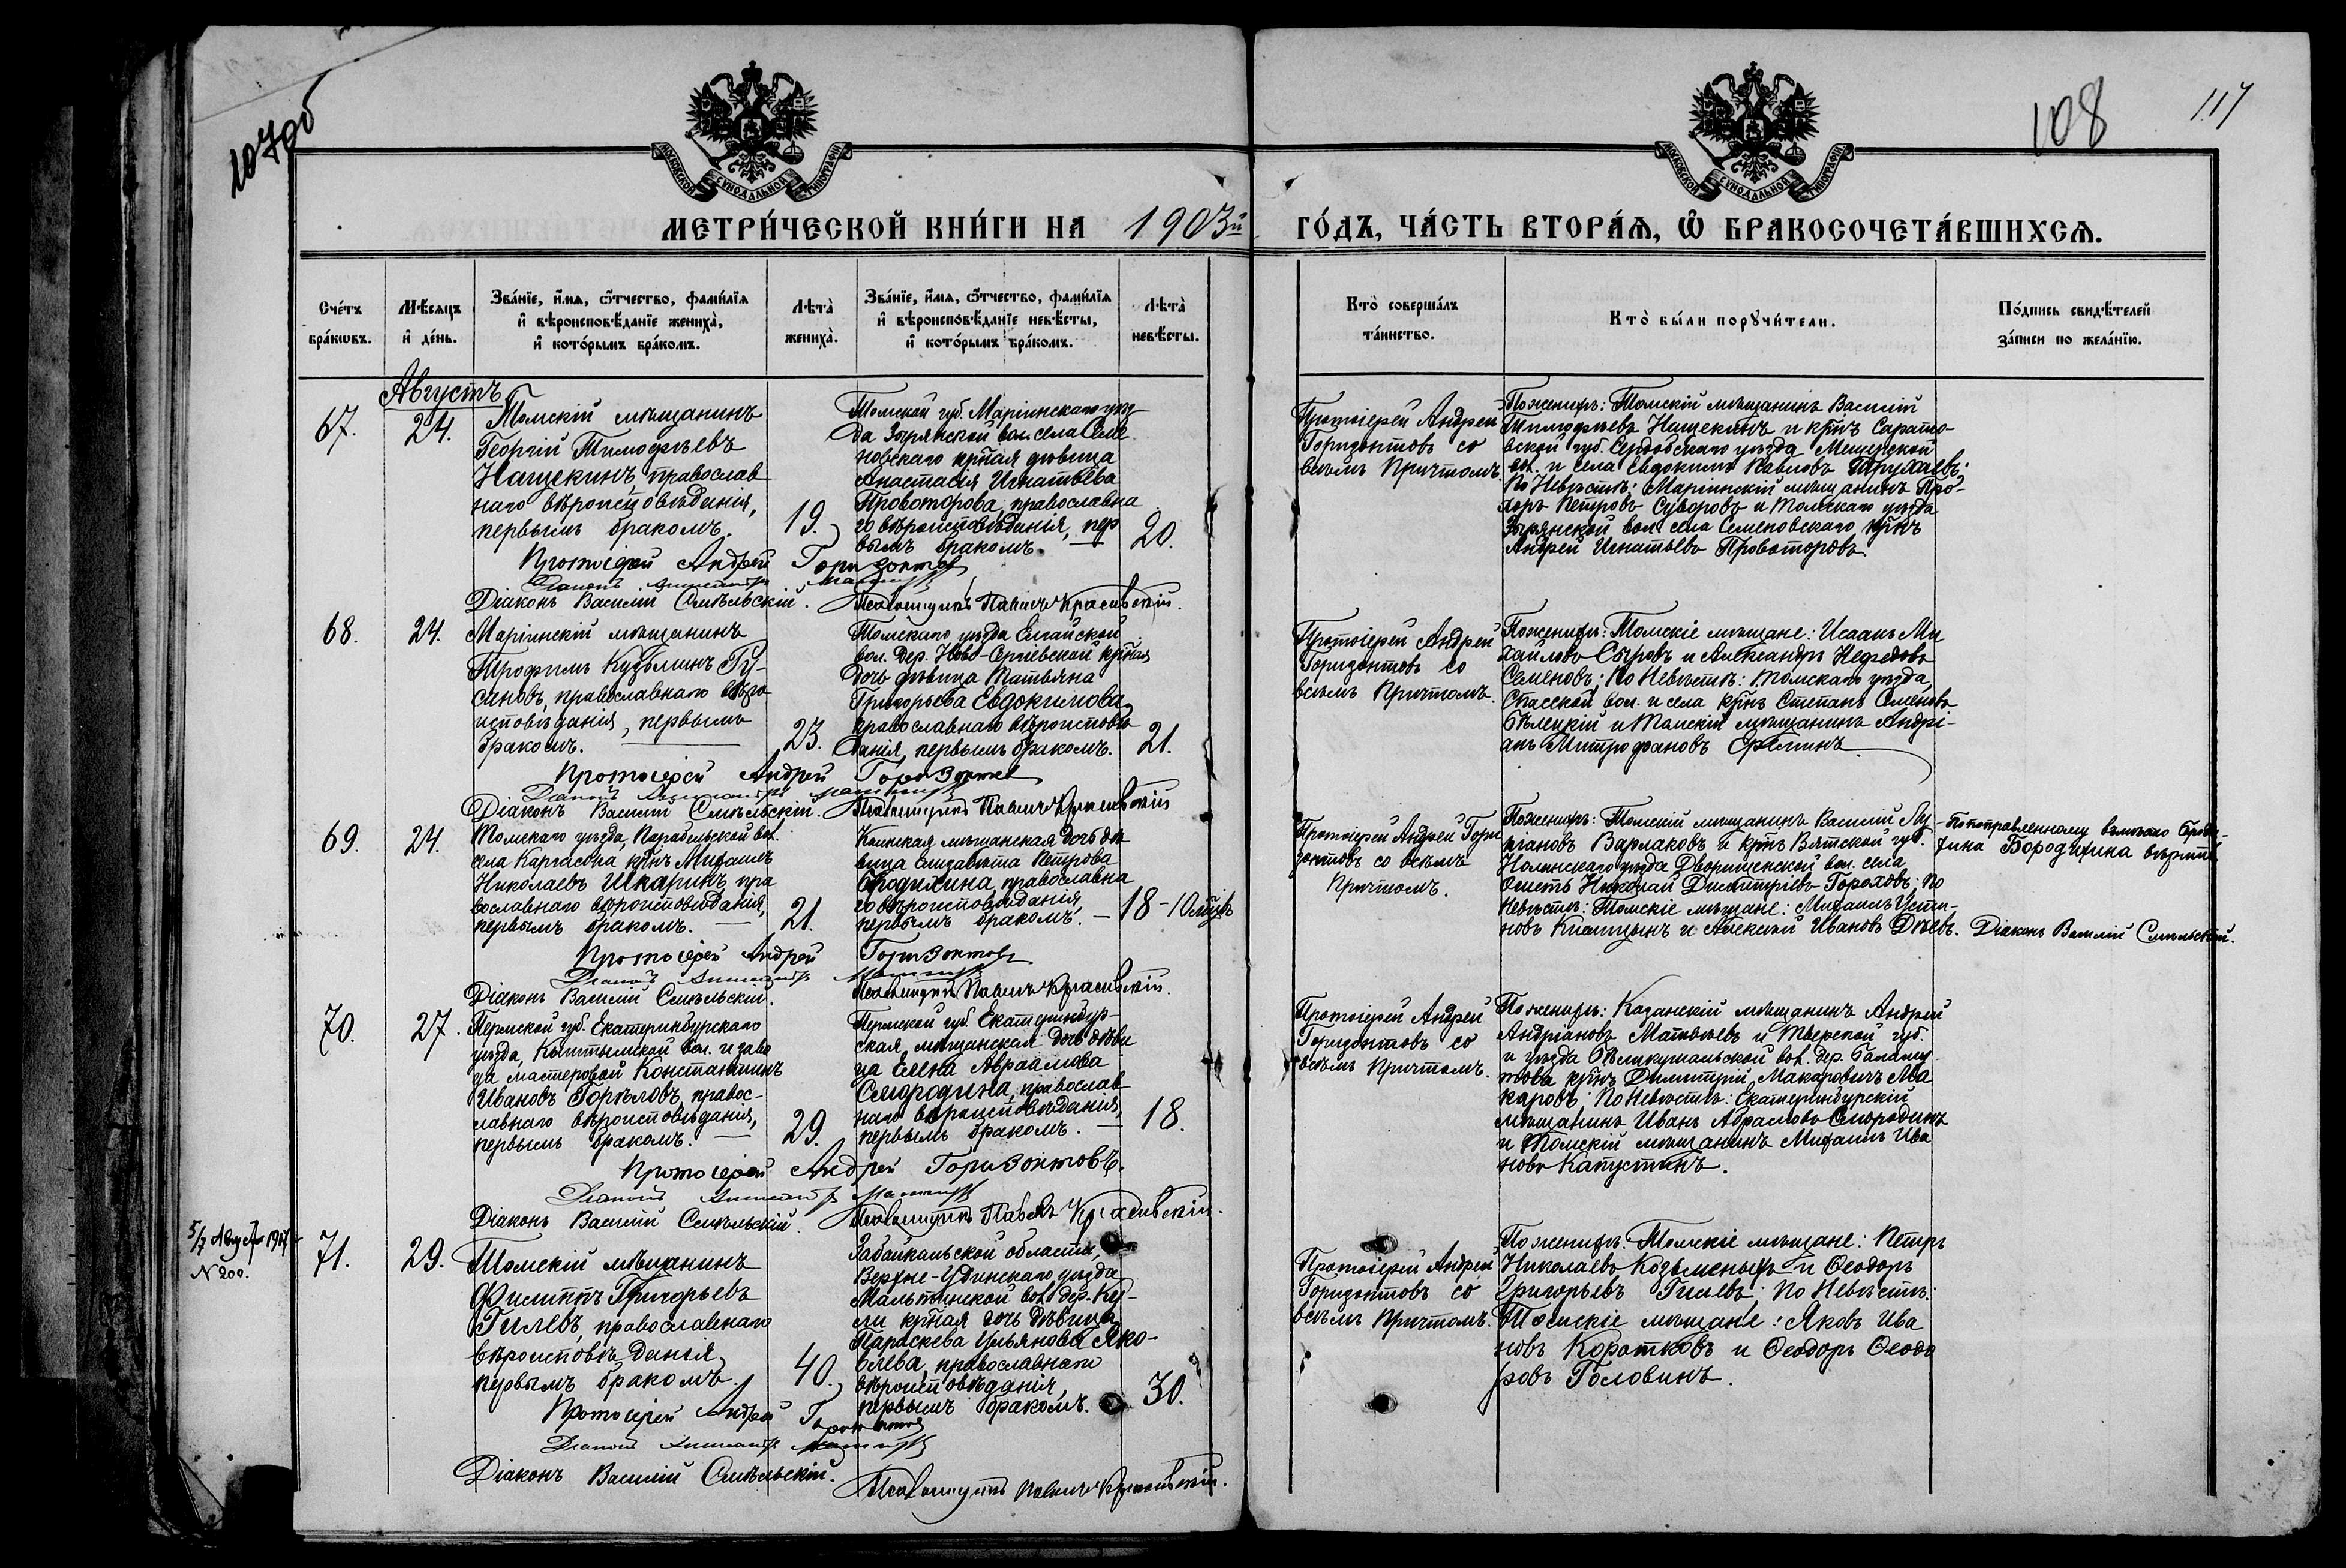 107об
108
117
МОСКОВСКОЙ СѴНОДАЛЬНОЙ ТИПОГРАФІИ
МОСКОВСКОЙ СѴНОДАЛЬНОЙ ТИПОГРАФІИ
МЕТРИ́ЧЕСКОЙ КНИ́ГИ НА 1903й ГО́ДЪ, ЧА́СТЬ ВТОРА́Ѧ, Ѽ БРАКОСОЧЕТА́ВШИХСѦ.
Сче́тъ бра́кѡвъ.
Мѣ́сяцъ и҆ де́нь.
Зва́нїе, и҆́мѧ, ѻ҆́тчество, фами́лїѧ
и҆ вѣроисповѣ́данїе жениха̀,
и҆ кото́рымъ бра́комъ.
Лѣта̀ жениха̀.
Зва́нїе, и҆́мѧ, ѻ҆́тчество, фами́лїѧ
и҆ вѣроисповѣ́данїе невѣ́сты,
и҆ кото́рымъ бра́комъ.
Лѣта̀ невѣ́сты.
Кто̀ соверша́лъ та́инство.
Кто̀ бы́ли порꙋчи́тели.
По́дпись свидѣ́телей
за́писи по жела́нїю.
Августъ
67.
24.
Томскій мѣщанинъ
Георгій Тимофѣевъ
Нащекинъ, православ
наго вѣроисповѣданія,
первымъ бракомъ.
19.
Томской губ. Маріинскаго уѣз
да Зырянской вол. села Семе
новскаго кр̃ная дѣвица
Анастасія Игнатьева
Провоторова, православна
го вѣроисповѣданія, пер
вымъ бракомъ.
20.
Протоіерей Андрей Горизонтовъ со
всѣмъ Причтомъ.
По женихѣ: Томскій мѣщанинъ Василій
Тимофѣевъ Нащекинъ и кр̃нъ Сарато-
вской губ. Сердобскаго уѣзда Мещерской
вол. и села Евдокимъ Павловъ Трухаевъ;
По Невѣстѣ: Маріинскій мѣщанинъ Про-
хоръ Петровъ Суворовъ и Томскаго уѣзда
Зырянской вол. села Семеновскаго кр̃нъ
Андрей Игнатьевъ Провоторовъ.
Протоіерей Андрей Горизонтовъ
Діаконъ Василій Смѣльскій.
Псаломщикъ Павелъ Красивскій.
68.
24.
Маріинскій мѣщанинъ
Трофимъ Кузьминъ Гу-
сановъ, православнаго вѣро
исповѣданія, первымъ
бракомъ.
23.
Томскаго уѣзда Елгайской
вол. Дер. Ново-Сергіевской кр̃ная
дочь дѣвица Татьяна
Григорьева Евдокимова,
православнаго вѣроисповѣ
данія, первымъ бракомъ.
21.
Протоіерей Андрей
Горизонтовъ со
всѣмъ Причтомъ.
По женихѣ: Томскіе мѣщане: Исаакъ Ми
хайловъ Сыровъ и Александръ Нефедовъ
Семеновъ; По Невѣстѣ: Томскаго уѣзда,
Спасской вол. и села кр̃нъ Степанъ Семеновъ
Бѣлецкій и Томскій мѣщанинъ Андрі-
анъ Митрофановъ
Протоіерей Андрей Горизонтовъ
Діаконъ Василій Смѣльскій.
Псаломщикъ Павелъ Красивскій
69.
24.
Томскаго уѣзда, Парабельской вол.
села Каргасока кр̃нъ Михаилъ
Николаевъ Шкаринъ, пра
вославнаго вѣроисповѣданія,
первымъ бракомъ.
21.
Каинская мѣщанская дочь дѣ
вица Елизавета Петрова
Бродихина, православна
го вѣроисповѣданія,
первымъ бракомъ.
18-10 мцвъ
Протоіерей Андрей Гори
зонтовъ со всѣмъ
Причтомъ.
По женихѣ: Томскій мѣщанинъ Василій Лу
кіановъ Варлаковъ и кр̃нъ Вятской губ.
Нолинскаго уѣзда Дворищенской вол. села
Николай Димитріевъ Гороховъ; По
Невѣстѣ: Томскіе мѣщане: Михаилъ Усти-
новъ Кислицынъ и Алексѣй Ивановъ Дѣевъ.
По поправленному вмѣсто Броди-
хина Бородихина вѣрить
Діаконъ Василій Смѣльскій.
Протоіерей Андрей Горизонтовъ
Діаконъ Василій Смѣльскій.
Псаломщикъ Павелъ Красивскій.
70.
27.
Пермской губ. Екатеринбургскаго
уѣзда, Кыштымской вол. и заво
да мастеровой Константинъ
Ивановъ Горѣловъ, правос-
лавнаго вѣроисповѣданія,
первымъ бракомъ.
29.
Пермской губ. Екатеринбур-
ская, мѣщанская дочь дѣви
ца Елена Авраамова
Смородина, православ
наго вѣроисповѣданія,
первымъ бракомъ.
18.
Протоіерей Андрей
Горизонтовъ со
всѣмъ Причтомъ.
По женихѣ: Казанскій мѣщанинъ Андрей
Андріановъ Матвѣевъ и Тверской губ.
и уѣзда Бѣликушальской вол. дер.
кр̃нъ Димитрій Макаровичъ Ма
каровъ; По Невѣстѣ: Екатеринбурскій
мѣщанинъ Иванъ Абрамовъ Смородинъ
и Томскій мѣщанинъ Михаилъ Ива
новъ Капустинъ.
Протоіерей Андрей Горизонтовъ.
Діаконъ Василій Смѣльскій.
Псаломщикъ Павелъ Красивскій.
5/7 Август 1917
N 200.
71.
29.
Томскій мѣщанинъ
Филиппъ Григорьевъ
Гилевъ, православнаго
вѣроисповѣданія,
первымъ бракомъ.
40.
Забайкальской области,
Верхне-Удинскаго уѣзда
Мальтинской вол. дер. Ку-
ли кр̃ная дочь дѣвица
Параскева Ульянова Яко-
влева, православнаго
вѣроисповѣданія,
первымъ бракомъ.
30.
Протоіерей Андрей
Горизонтовъ со
всѣмъ Причтомъ.
По женихѣ: Томскіе мѣщане: Петръ
Николаевъ Козьменыхъ и Ѳеодоръ
Григорьевъ Гилевъ; По Невѣстѣ:
Томскіе мѣщане: Яковъ Ива
новъ Коротковъ и Ѳеодоръ Ѳеодо
ровъ Головинъ.
Протоіерей Андрей Горизонтовъ
Діаконъ Василій Смѣльскій.
Псаломщикъ Павелъ Красивскій.